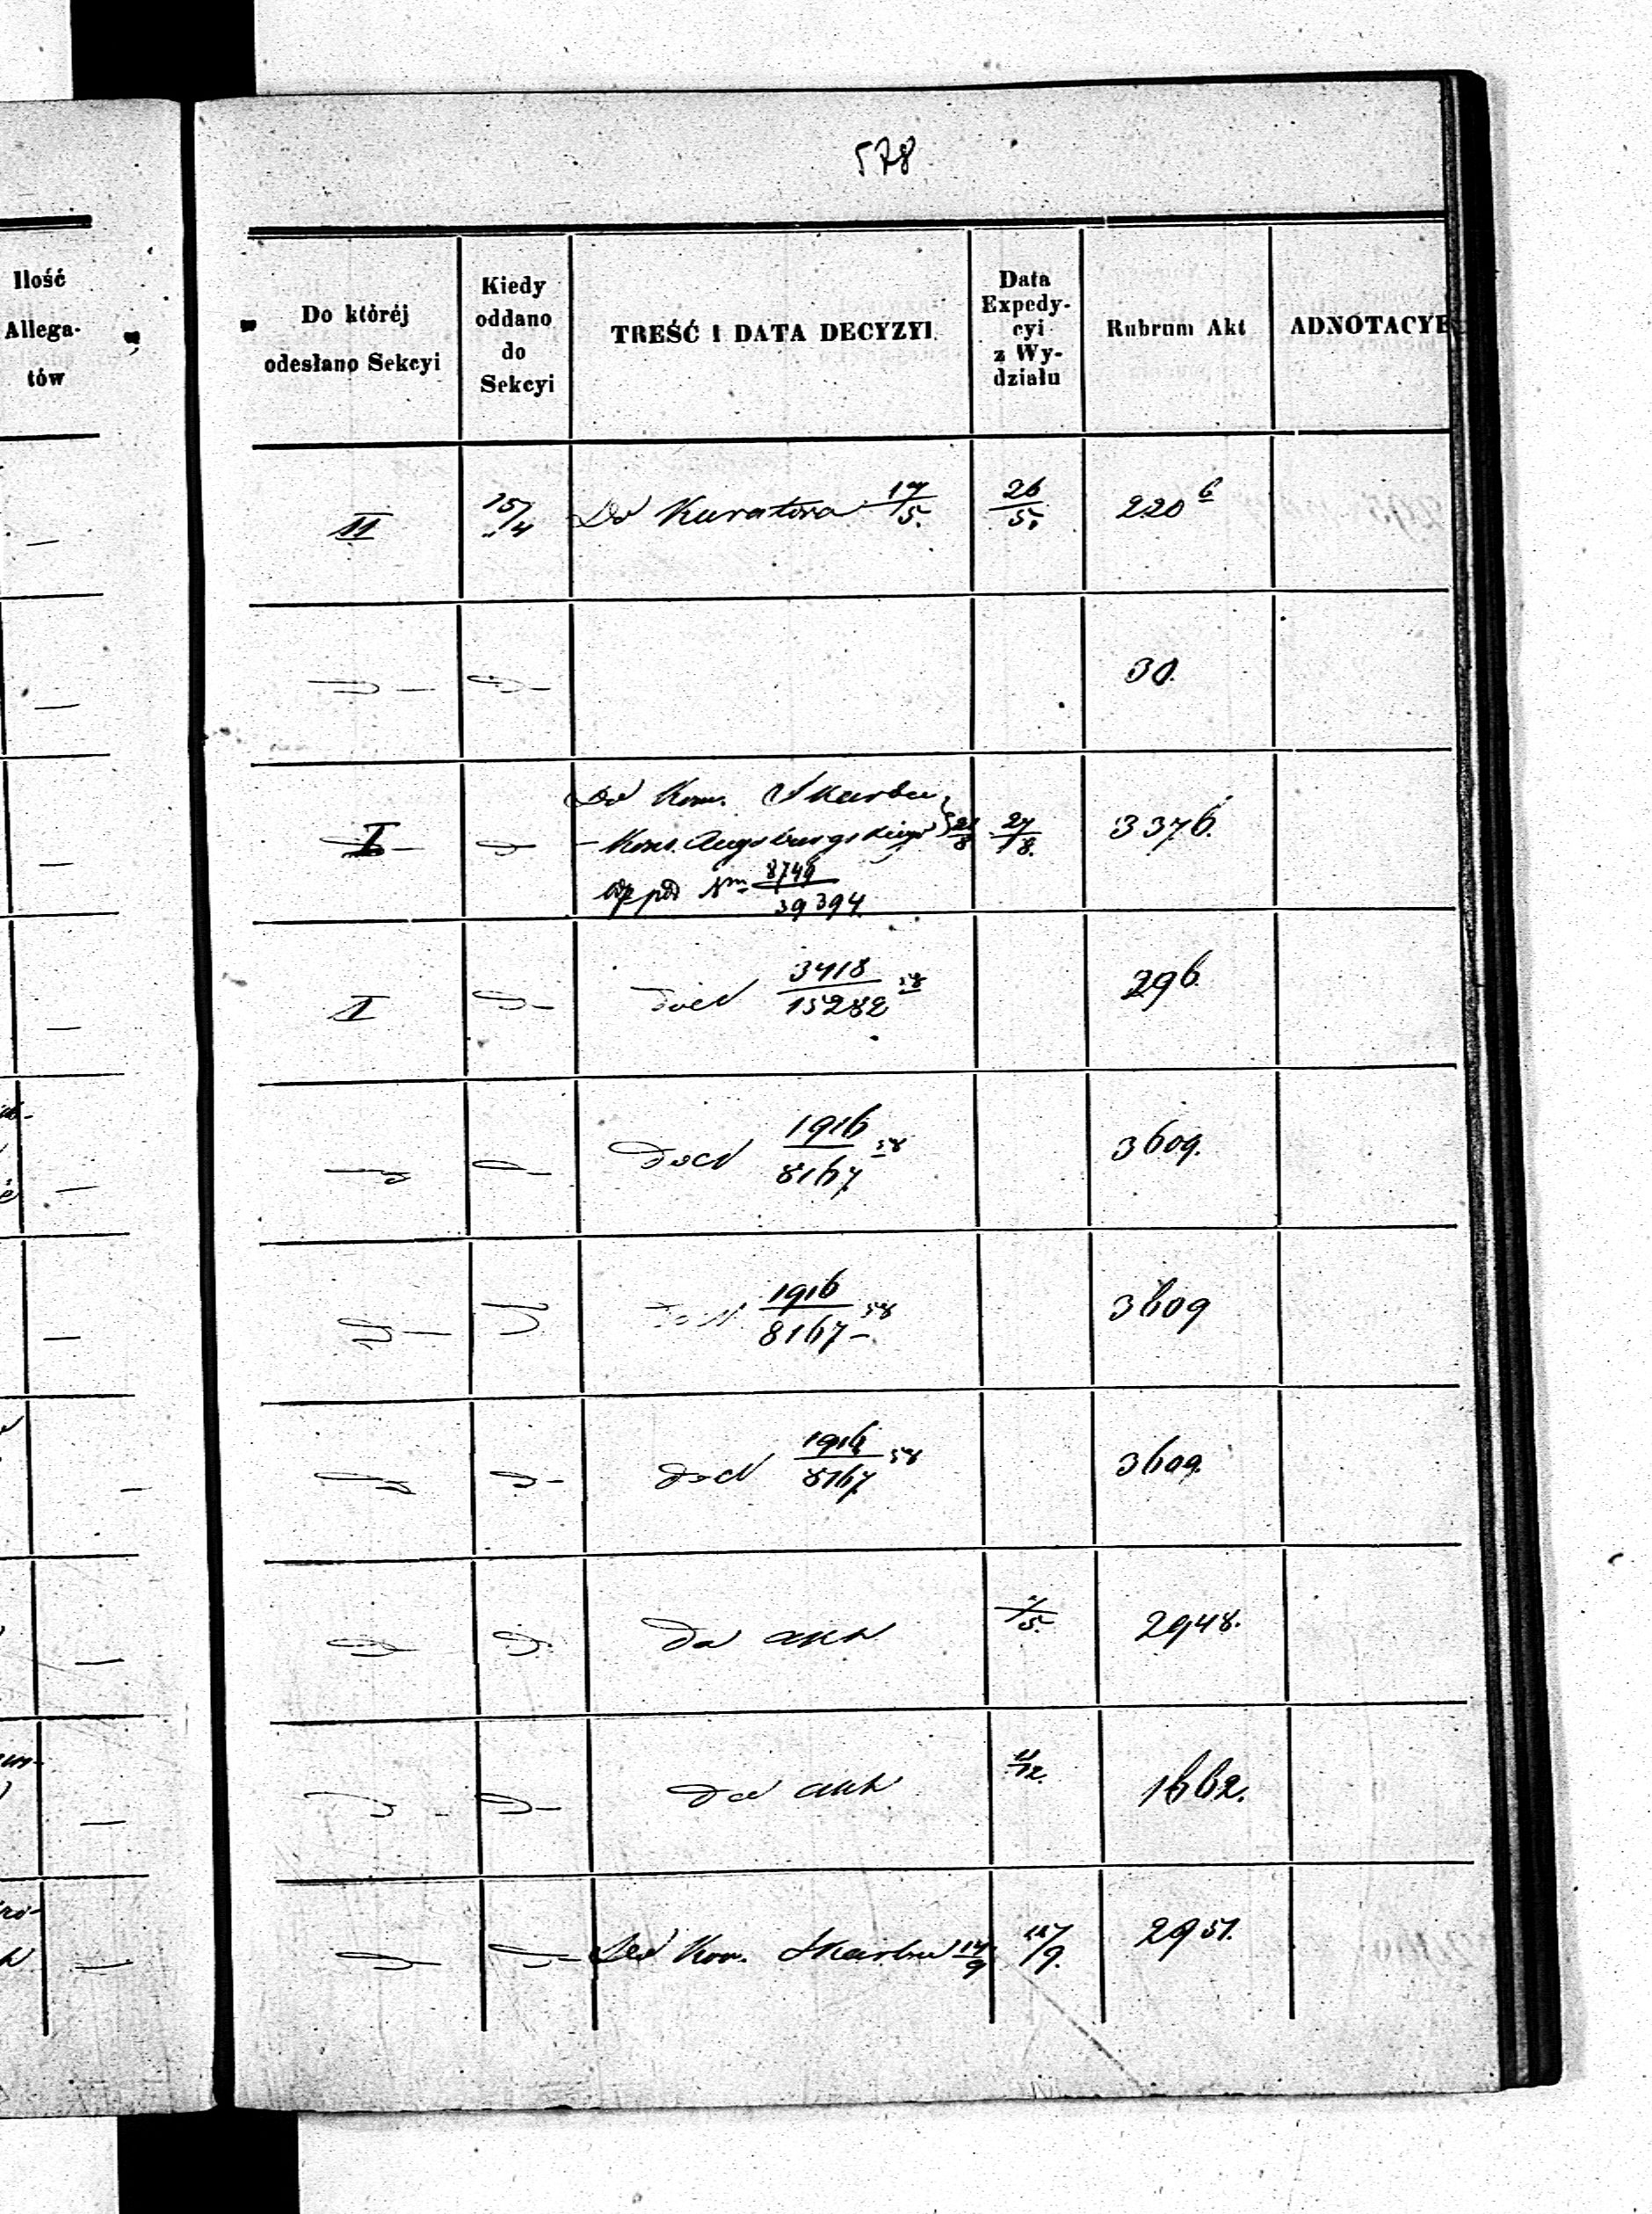 578
Ilość
Allega-
tów
Do któréj
odesłano Sekcyi
Kiedy
oddano
do
Sekcyi
TREŚĆ I DATA DECYZYI
Data
Expedy-
cyi
z Wy-
działu
Rubrum Akt
ADNOTACYE
II 15/4 Do Kuratora 17/5. 26/5. 220 b
30.
I Do Kom. Skarbu
— Kons. Augsburgskiego 21/8 27/8. 3376.
pod Nm 8749/39394
I 3418/15282 58 296.
1916/8167 58 3609.
1916/8167 58 3609
1916/8167 58 3609.
Do akt /5. 2948.
Do akt 11/12. 1662.
Do Kom. Skarbu 14/9 /9. 2951.